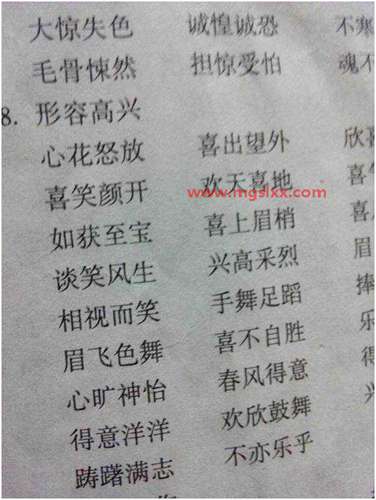 大惊失色 诚惶诚恐 不寒
毛骨悚然 担惊受怕 魂不
8. 形容高兴
心花怒放 喜出望外 欣喜
喜笑颜开 欢天喜地 喜
www.mgslxx.com
如获至宝 喜上眉梢 喜
谈笑风生 兴高采烈 眉
相视而笑 手舞足蹈 捧
眉飞色舞 喜不自胜 乐
心旷神怡 春风得意 得
得意洋洋 欢欣鼓舞
踌躇满志 不亦乐乎